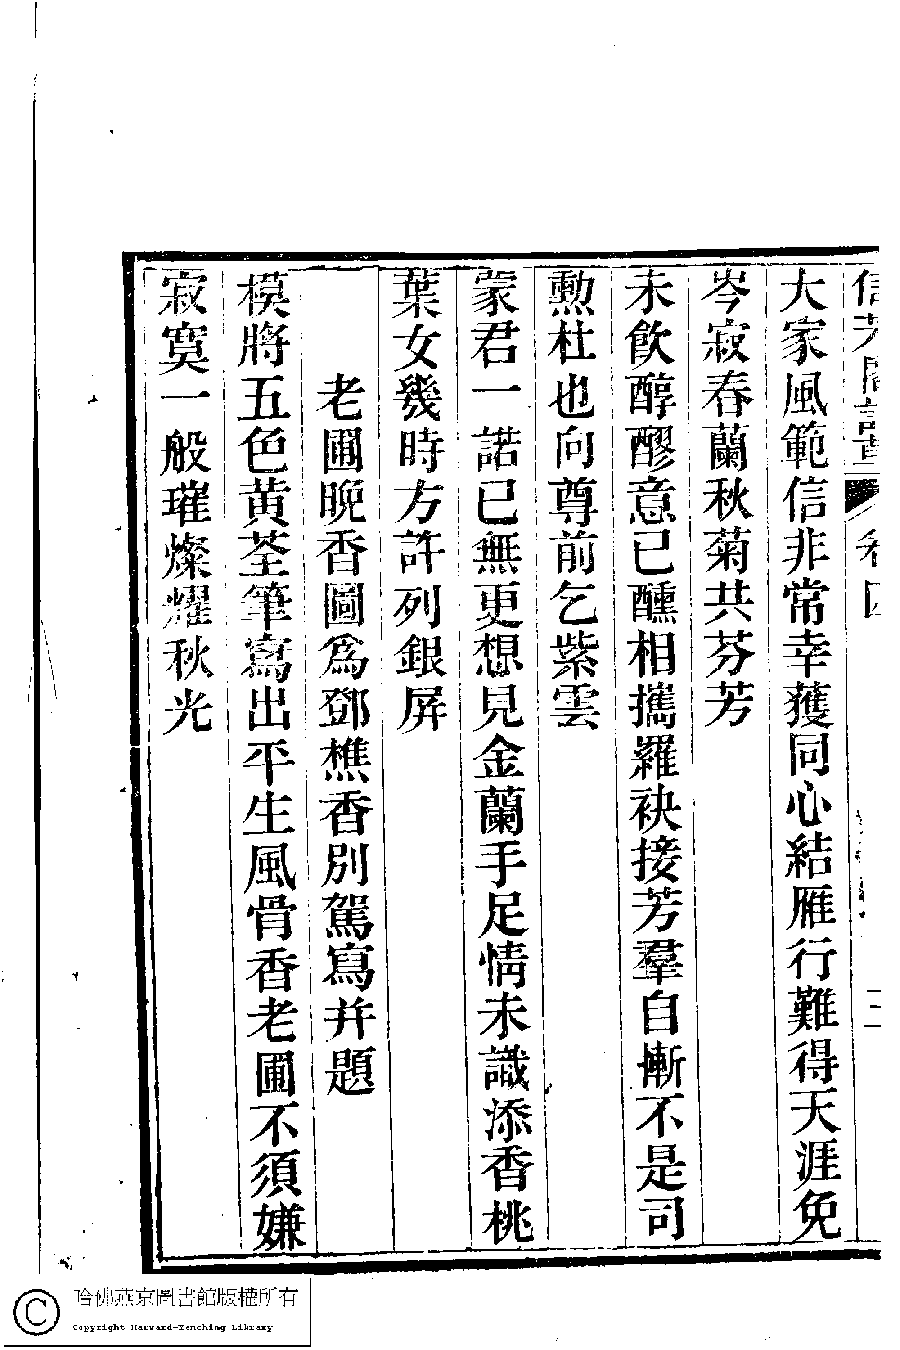 信芳閣詩草 卷四
大家風範信非常幸獲同心結雁行難得天涯免
岑寂春蘭秋菊共芬芳
未飲醇醪意已醺相攜羅袂接芳羣自慚不是司
勲杜也向尊前乞紫雲
蒙君一諾已無更想見金蘭手足情未識添香桃
葉女幾時方許列銀屏
老圃晚香圖爲鄧樵香別駕寫并題
模將五色黃荃筆寫出平生風骨香老圃不須嫌
寂寞一般璀燦耀秋光
哈佛燕京圖書館版權所有
Copyright Harvard-Yenching Library